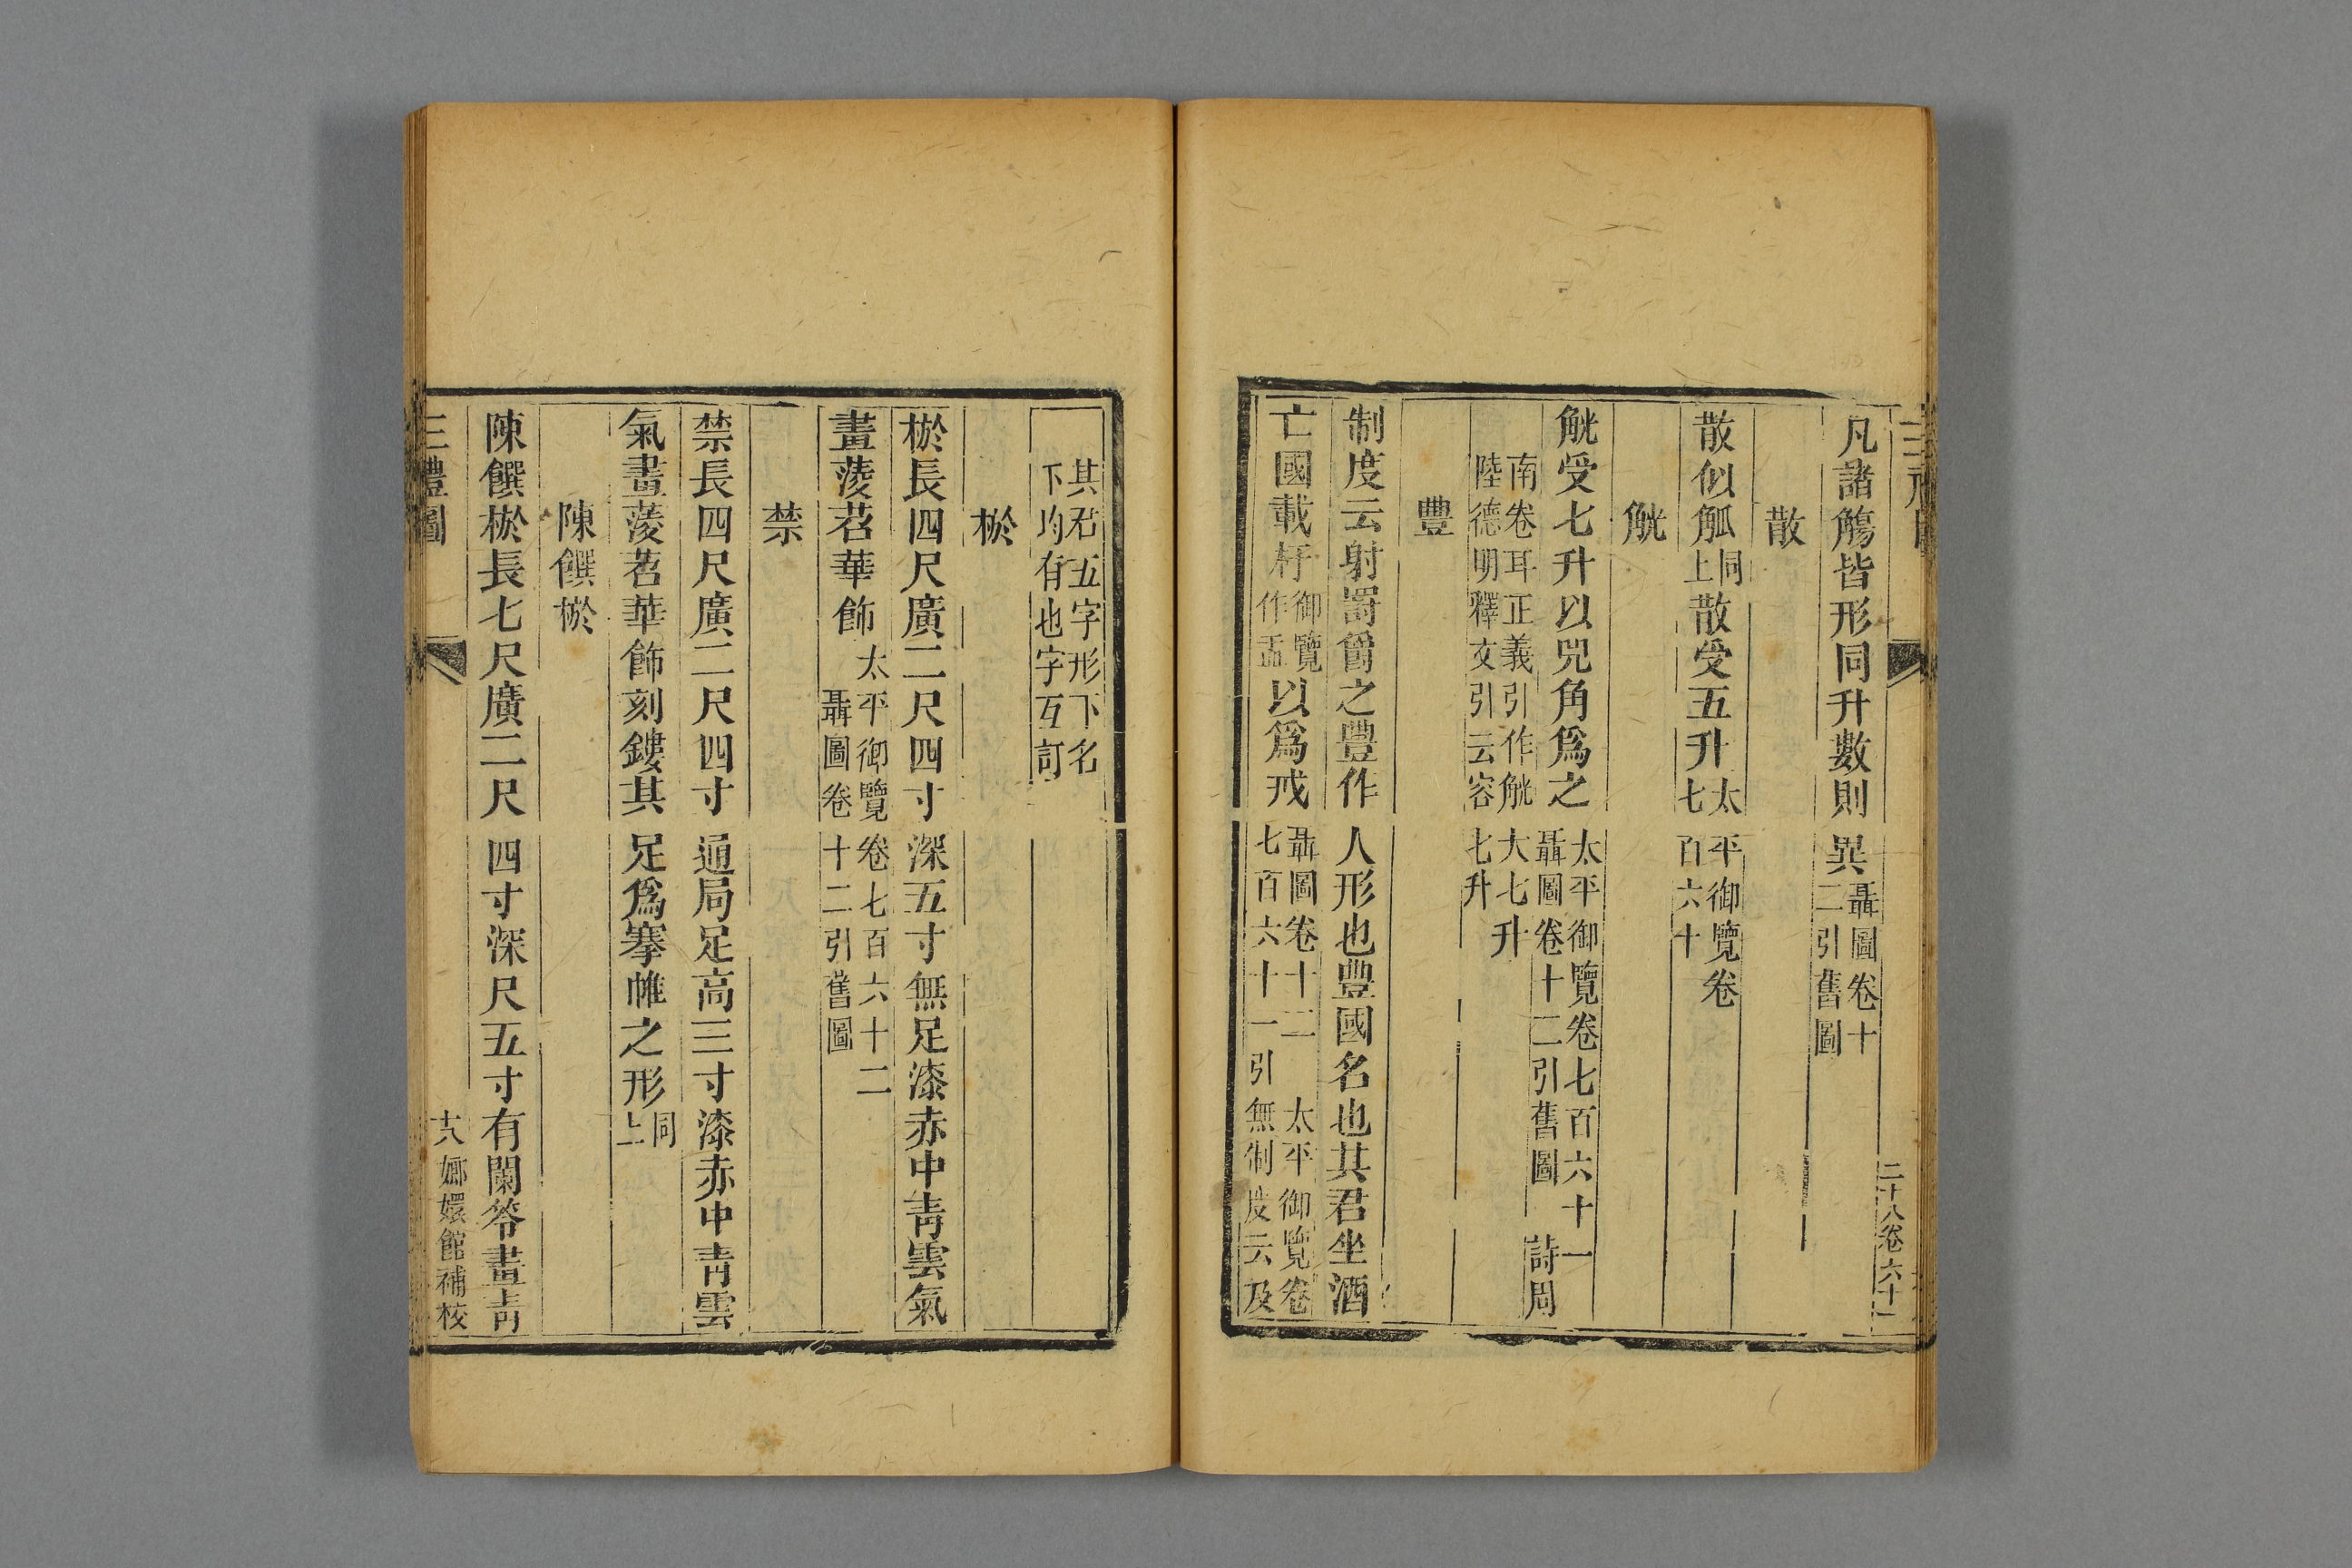 凡諸觴皆形同升數則異聶圖卷十二引舊圖
散
散似觚同上散受五升太平御覽卷七百六十
觥
觥受七升以兕角爲之太平御覽卷七百六十一聶圖卷十二引舊圖 詩周
南卷耳正義引作觥大七升陸德明釋文引云容七升
豐
制度云射罰爵之豐作人形也豐國名也其君坐酒
亡國載杅御覽作盂以爲戒聶圖卷十二 太平御覽卷七百六十一引無制度云及
二十八卷六十一
其君五字形下名下均有也字互訂
棜
棜長四尺廣二尺四寸深五寸無足漆赤中靑雲氣
畫蔆苕華飾太平御覽卷七百六十二聶圖卷十二引舊圖
禁
禁長四尺廣二尺四寸通局足高三寸漆赤中靑雲
氣畫蔆苕華飾刻鏤其足爲搴帷之形同上
陳饌棜
陳饌棜長七尺廣二尺四寸深尺五寸有闌笭畫靑
三禮圖
六 嫏嬛館補校